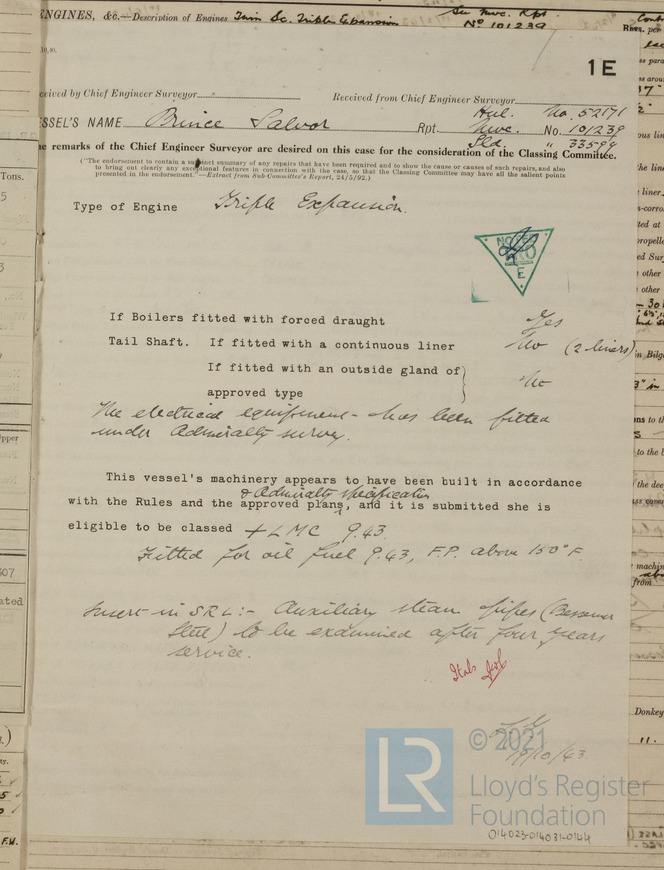 ENGINES, &c.—Description of Engines Twin Sc. Triple Expansion
See Nwc. Rpt.
No 101239
1E
ceived by Chief Engineer Surveyor
Received from Chief Engineer Surveyor
Hul. No. 52171
ESSEL'S NAME Prince Salvor Rpt. Nwc. No. 101239
Sld. " 33594
he remarks of the Chief Engineer Surveyor are desired on this case for the consideration of the Classing Committee.
("The endorsement to contain a succinct summary of any repairs that have been required and to show the cause or causes of such repairs, and also
to bring out clearly any exceptional features in connection with the case, so that the Classing Committee may have all the salient points
presented in the endorsement."—Extract from Sub-Committee's Report, 24/5/92.)
Type of Engine Triple Expansion.
NOTED
E
If Boilers fitted with forced draught Yes
Tail Shaft. If fitted with a continuous liner No (2 liners)
If fitted with an outside gland of}
approved type No
The electrical equipment has been fitted
under Admiralty survey.
This vessel's machinery appears to have been built in accordance
& Admiralty Specification
with the Rules and the approved plans, and it is submitted she is
eligible to be classed + LMC 9.43.
Fitted for oil fuel 9.43, F.P. above 150°F
Insert in S.R.L:- Auxiliary steam pipes (Bessemer
Steel) to be examined after four years
service.
19/10/43
© 2021
LR
Lloyd's Register
Foundation
014023-014031-0144
Tons.
5
3
pper
307
ated
F.W.
Donkey
11.